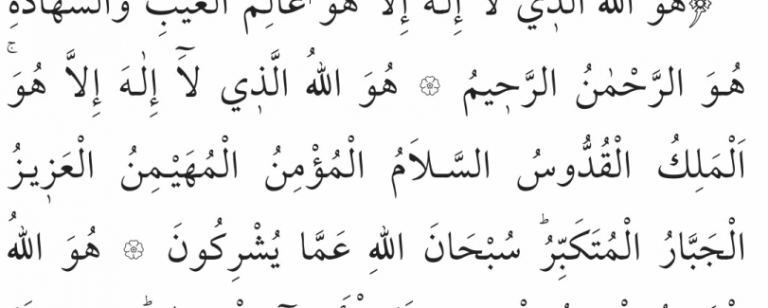 هُوَ اللهُ الَّذ۪ي لَٓا اِلٰهَ اِلَّا هُوَۚ عَالِمُ الْغَيْبِ وَالشَّهَادَةِ
هُوَ الرَّحْمٰنُ الرَّح۪يمُ ۞ هُوَ اللهُ الَّذ۪ي لَٓا إِلٰهَ إِلَّا هُوَۚ
اَلْمَلِكُ الْقُدُّوسُ السَّلاَمُ الْمُؤْمِنُ الْمُهَيْمِنُ الْعَز۪يزُ
الْجَبَّارُ الْمُتَكَبِّرُۜ سُبْحَانَ اللهِ عَمَّا يُشْرِكُونَ ۞ هُوَ اللهُ